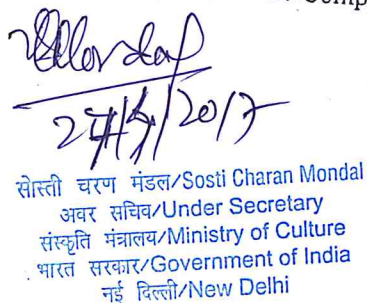 Comp
2017
सोस्ती चरण मंडल/Sosti Charan Mondal
अवर सचिव/Under Secretary
संस्कृति मंत्रालय/Ministry of Culture
भारत सरकार/Government of India
नई दिल्ली/New Delhi